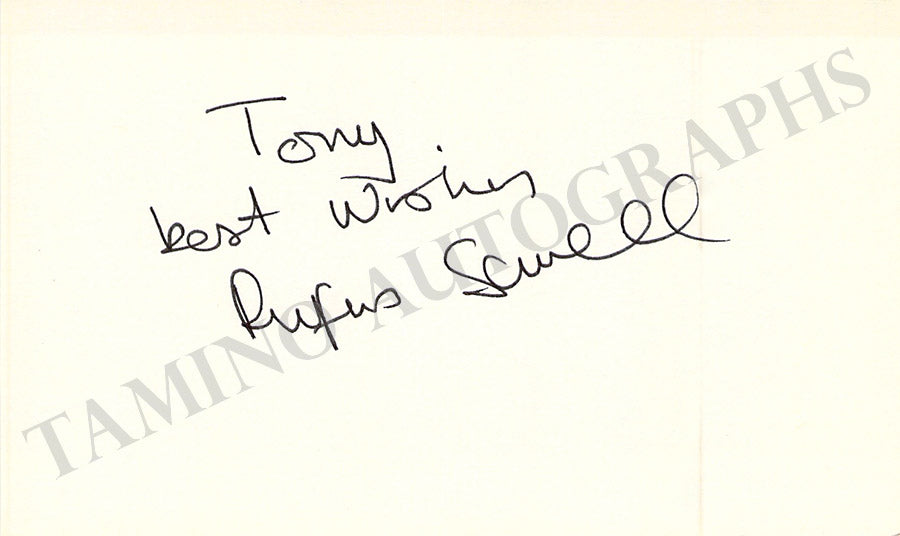 Tony
best wishes
Rufus Sewell
TAMINO AUTOGRAPHS